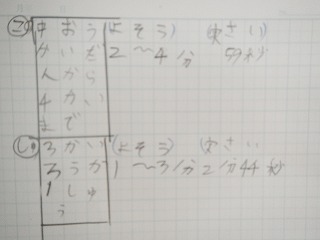 ② 中おう (よそう) (じっさい)
かいだ 2〜4分 59秒
んから
4かい
まで
し 3かい (よそう) (じっさい)
ろうか 1〜3分 2分44秒
1しゅ
う